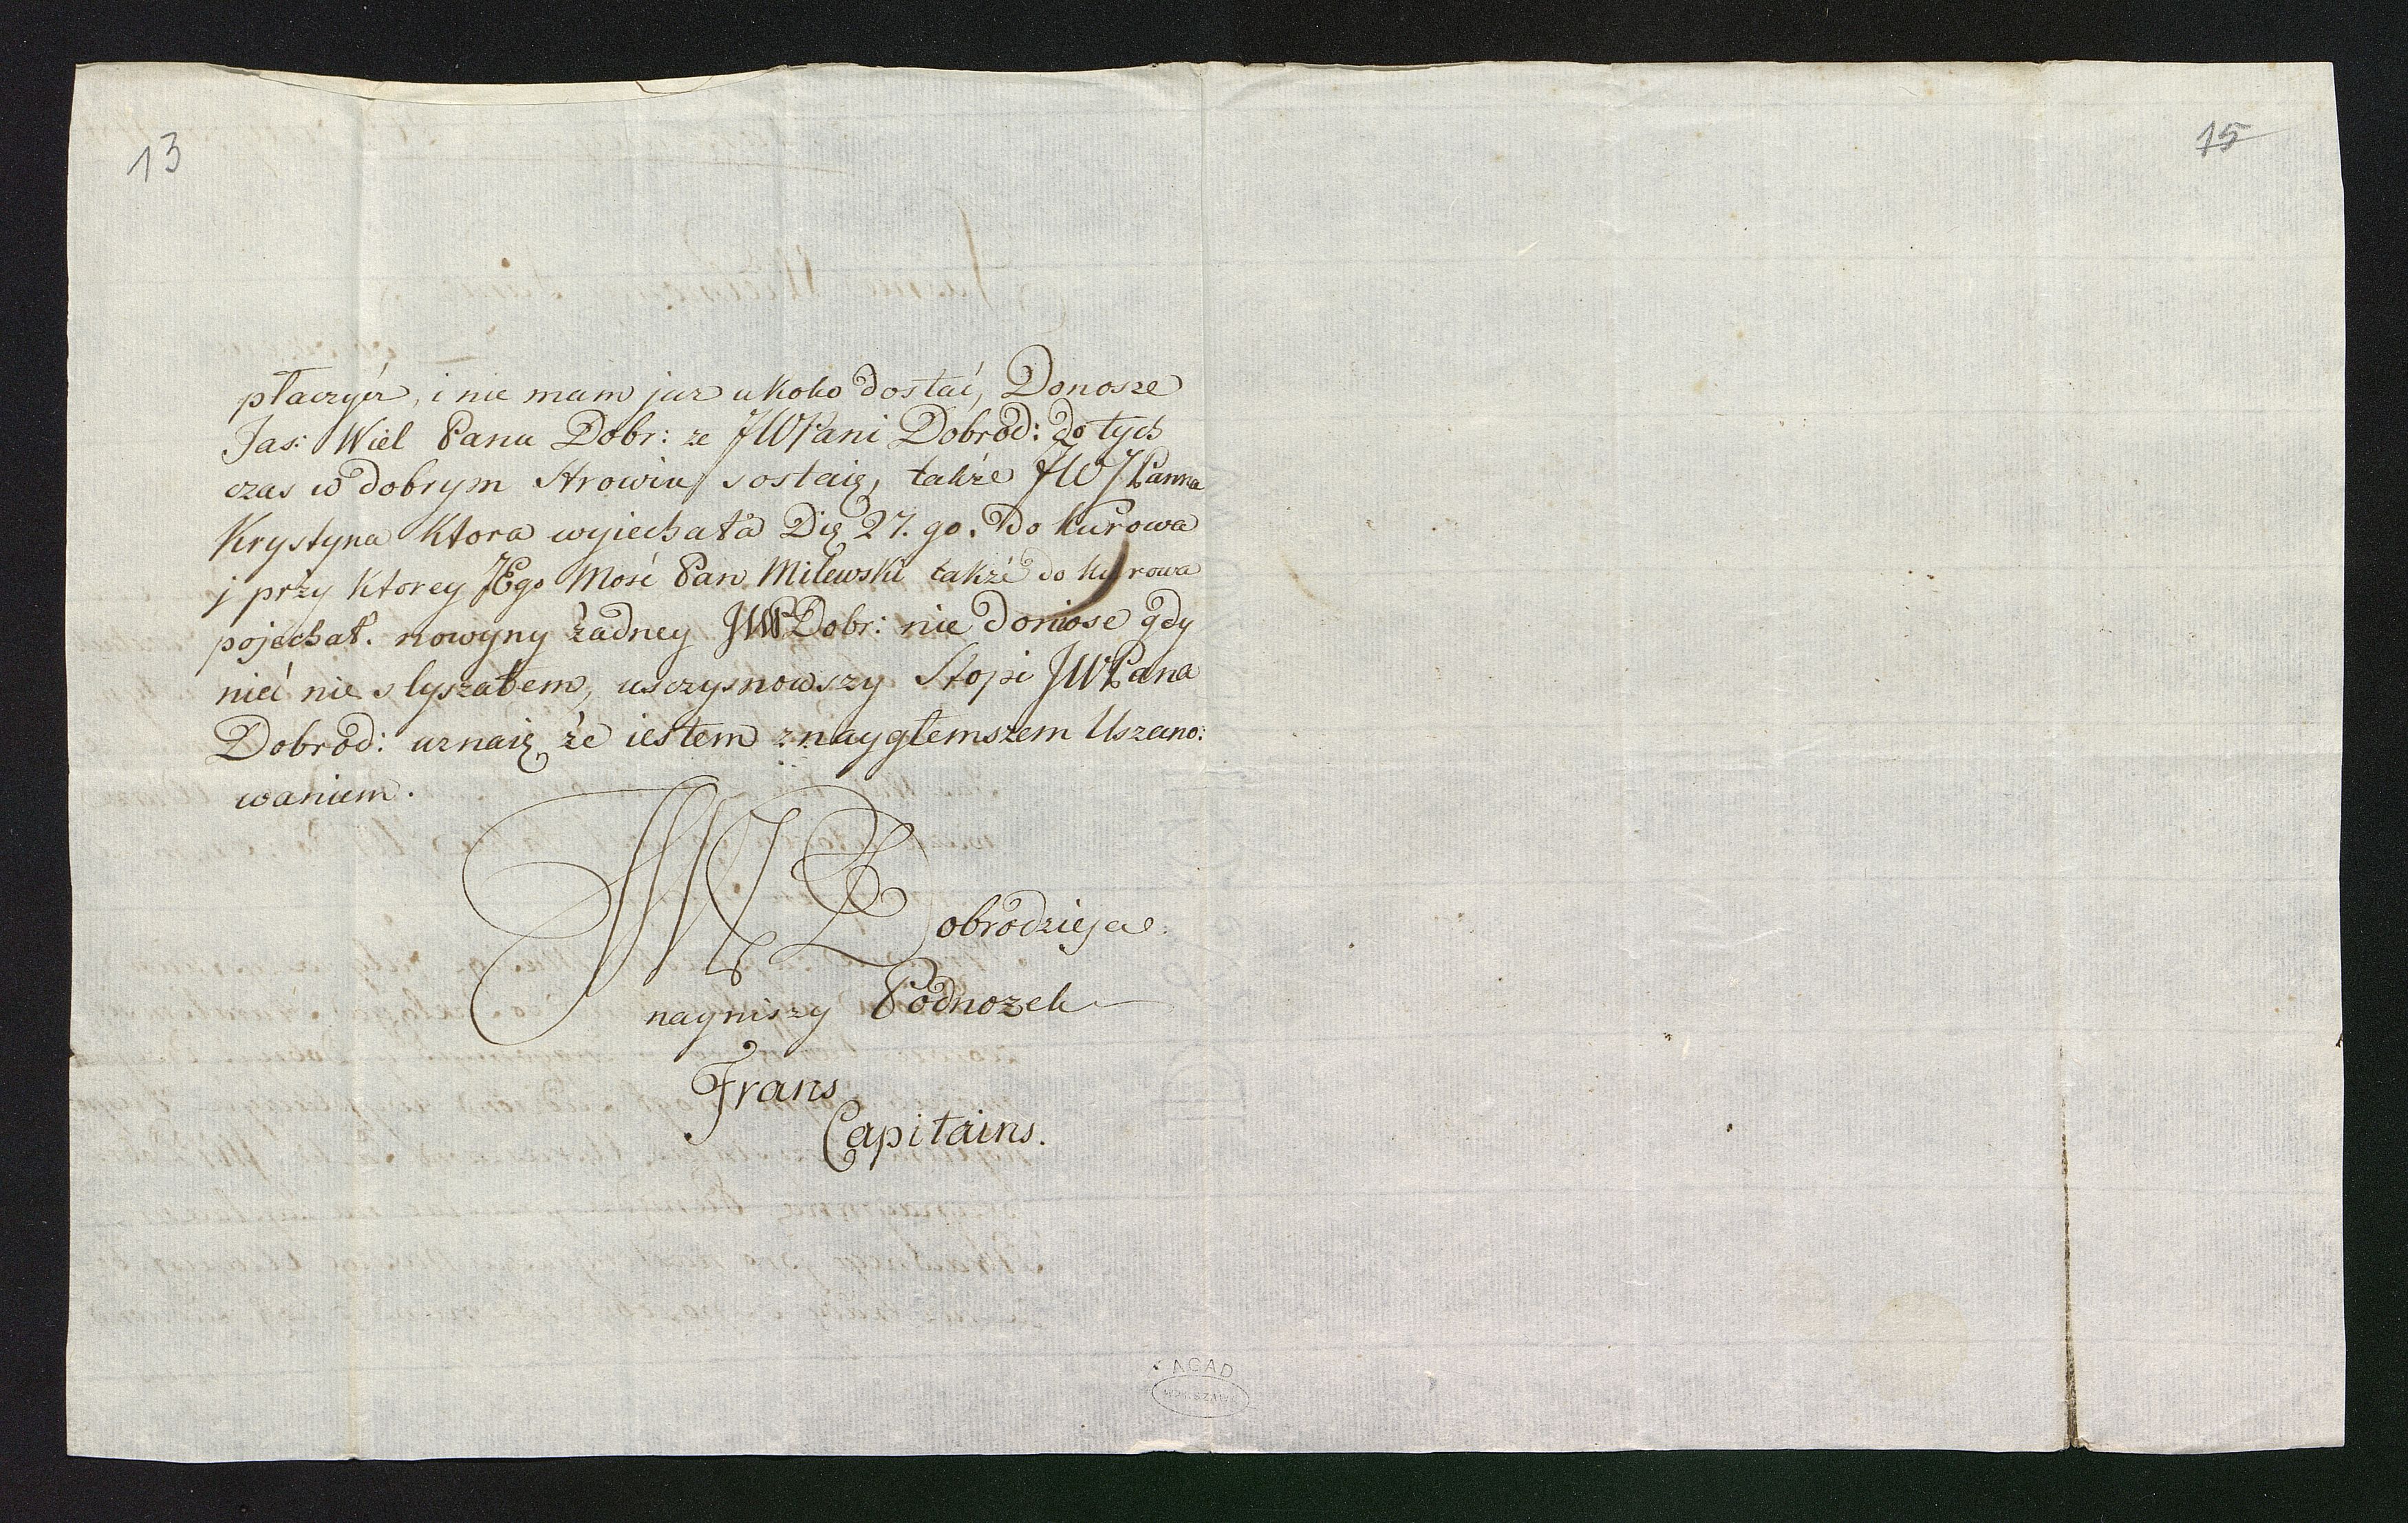 13
15
płaczyér, i nie mam juz ukoho dostać, Donosze
Jas: Wiel Panu Dobr: ze JWPani Dobrod: do tych
czas w dobrym strowiu sostaię, takźe JWJPanna
Krystyna Ktora wyiechała Dię 27. go. Do Kurowa
j przy Ktorey JEgo Mosć Pan Milewski takźe do Kurowa
pojechał. nowyny źadney JWP Dobr: nie doniose gdy
nieć nie slyszałem, usczysnowszy Stopi JWPana
Dobrod: uznaię źe iestem znaygłemszem Uszano:
waniem.
JWP Dobrodzieja
nayniszy Podnozek
Frans
Capitains.
AGAD
WARSZAWA